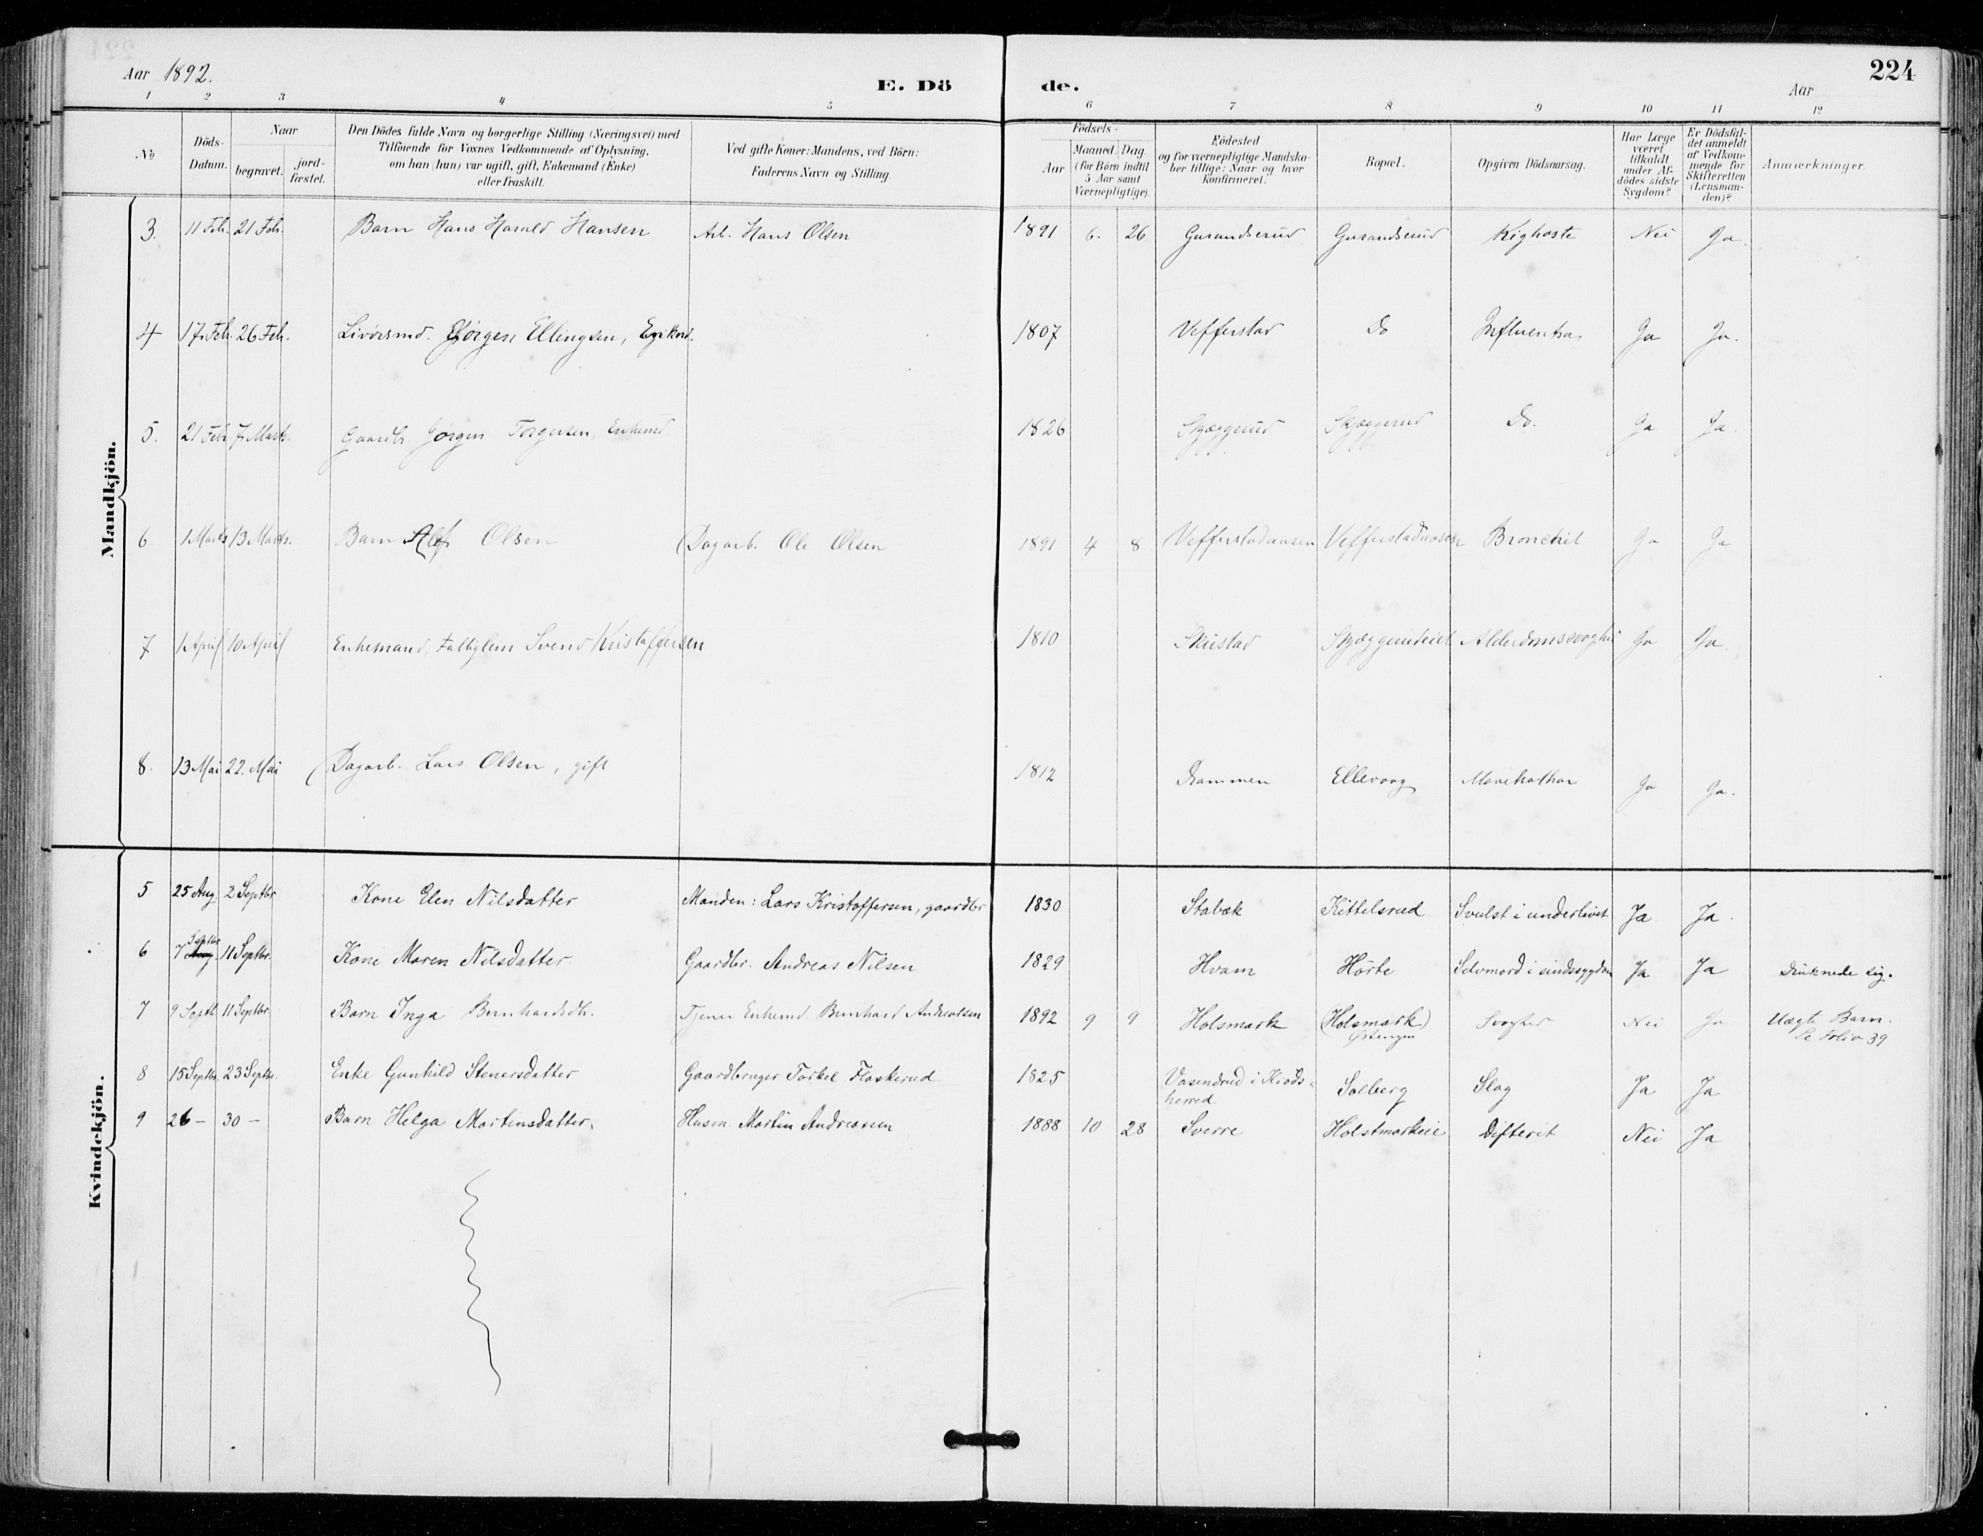 Aar 1892.
E. Dö
de.
Aar
224
1 2 3 4 5 6 7 8 9 10 11 12
No
Döds-
Datum.
Naar
begravet.
jord-
fæstet.
Den Dödes fulde Navn og borgerlige Stilling (Næringsvei) med
Tilföiende for Voxnes Vedkommende af Oplysning,
om han (hun) var ugift, gift, Enkemand (Enke)
eller fraskilt.
Ved gifte Koner: Mandens, ved Börn:
Faderens Navn og Stilling.
Födsels-
Aar
Maaned. Dag
(for Börn indtil
5 Aar samt
Værnepligtige).
Födested
og for værnepligtige Mandska-
ber tillige: Naar og hvor
konfirmeret.
Bopæl.
Opgiven Dödsaarsag.
Har Læge
været
tilkaldt
under Af-
dödes sidste
Sygdom?
Er Dödsfal-
det anmeldt
af Vedkom-
mende for
Skifteretten
(Lensman-
den)?
Anmærkninger.
Mandkjön.
3. 11 Feb. 21 Feb. Barn Hans Harald Hansen Arb. Hans Olsen 1891 6. 26 Gurandsrud Gurandsrud Kighoste Nei Ja.
4 17. Feb. 26 Feb. Jörgen Ellingsen, 1807 Vefferstad Do Influentsa Ja Ja.
5. 21 Feb. 7. Marts. Gaardbr. Jörgen Torgersen, Enkemd 1826 Skjæggerud Skjæggerud Do. Ja Ja.
6 1 Marts 13 Marts. Barn Alf Olsen Dagarb. Ole Olsen 1891 4 8 Vefferstadaasen Vefferstadaasen Bronchit Ja Ja
7 1 April 10 April Enkemand, Fattiglem Svend Kristoffersen 1810 Skistad Alderdomssvaghed Ja Ja.
8. 13 Mai 22. Mai Dagarb. Lars Olsen, gift 1812 Drammen Ellevaag Mavekathar Ja Ja.
Kvindekjön.
5 25 Aug. 2 Septbr Kone Elen Nilsdatter Manden: Lars Kristoffersen, gaardbr 1830 Stabæk Kittelsrud Svulst i underlivet Ja Ja.
6 7 Septbr 11 Septbr. Kone Maren Nilsdatter Gaardbr. Andreas Nilsen 1829 Hvam Hörte Selvmord i sindssygdom Ja Ja Druknede sig.
7 9 Septb 11 Septbr. Barn Inga Bernhardsdt. Tjener Enkemd Bernhard Andreasen 1892 9 9 Holsmark (Holsmark) Svaghed Nei Ja Uægte Barn.
Østengen
Se Folio 39
8 15 Septbr. 23 Septbr. Enke Gunhild Stenersdatter Gaardbruger Torkel Flaskerud 1825 Vasendrud i Krøds- Solberg Slag Ja Ja
herred
9 26 – 30 – Barn Helga Martinsdatter. Husm. Martin Andreasen 1888 10 28 Sverre Holstmarkeie Difterit Nei Ja